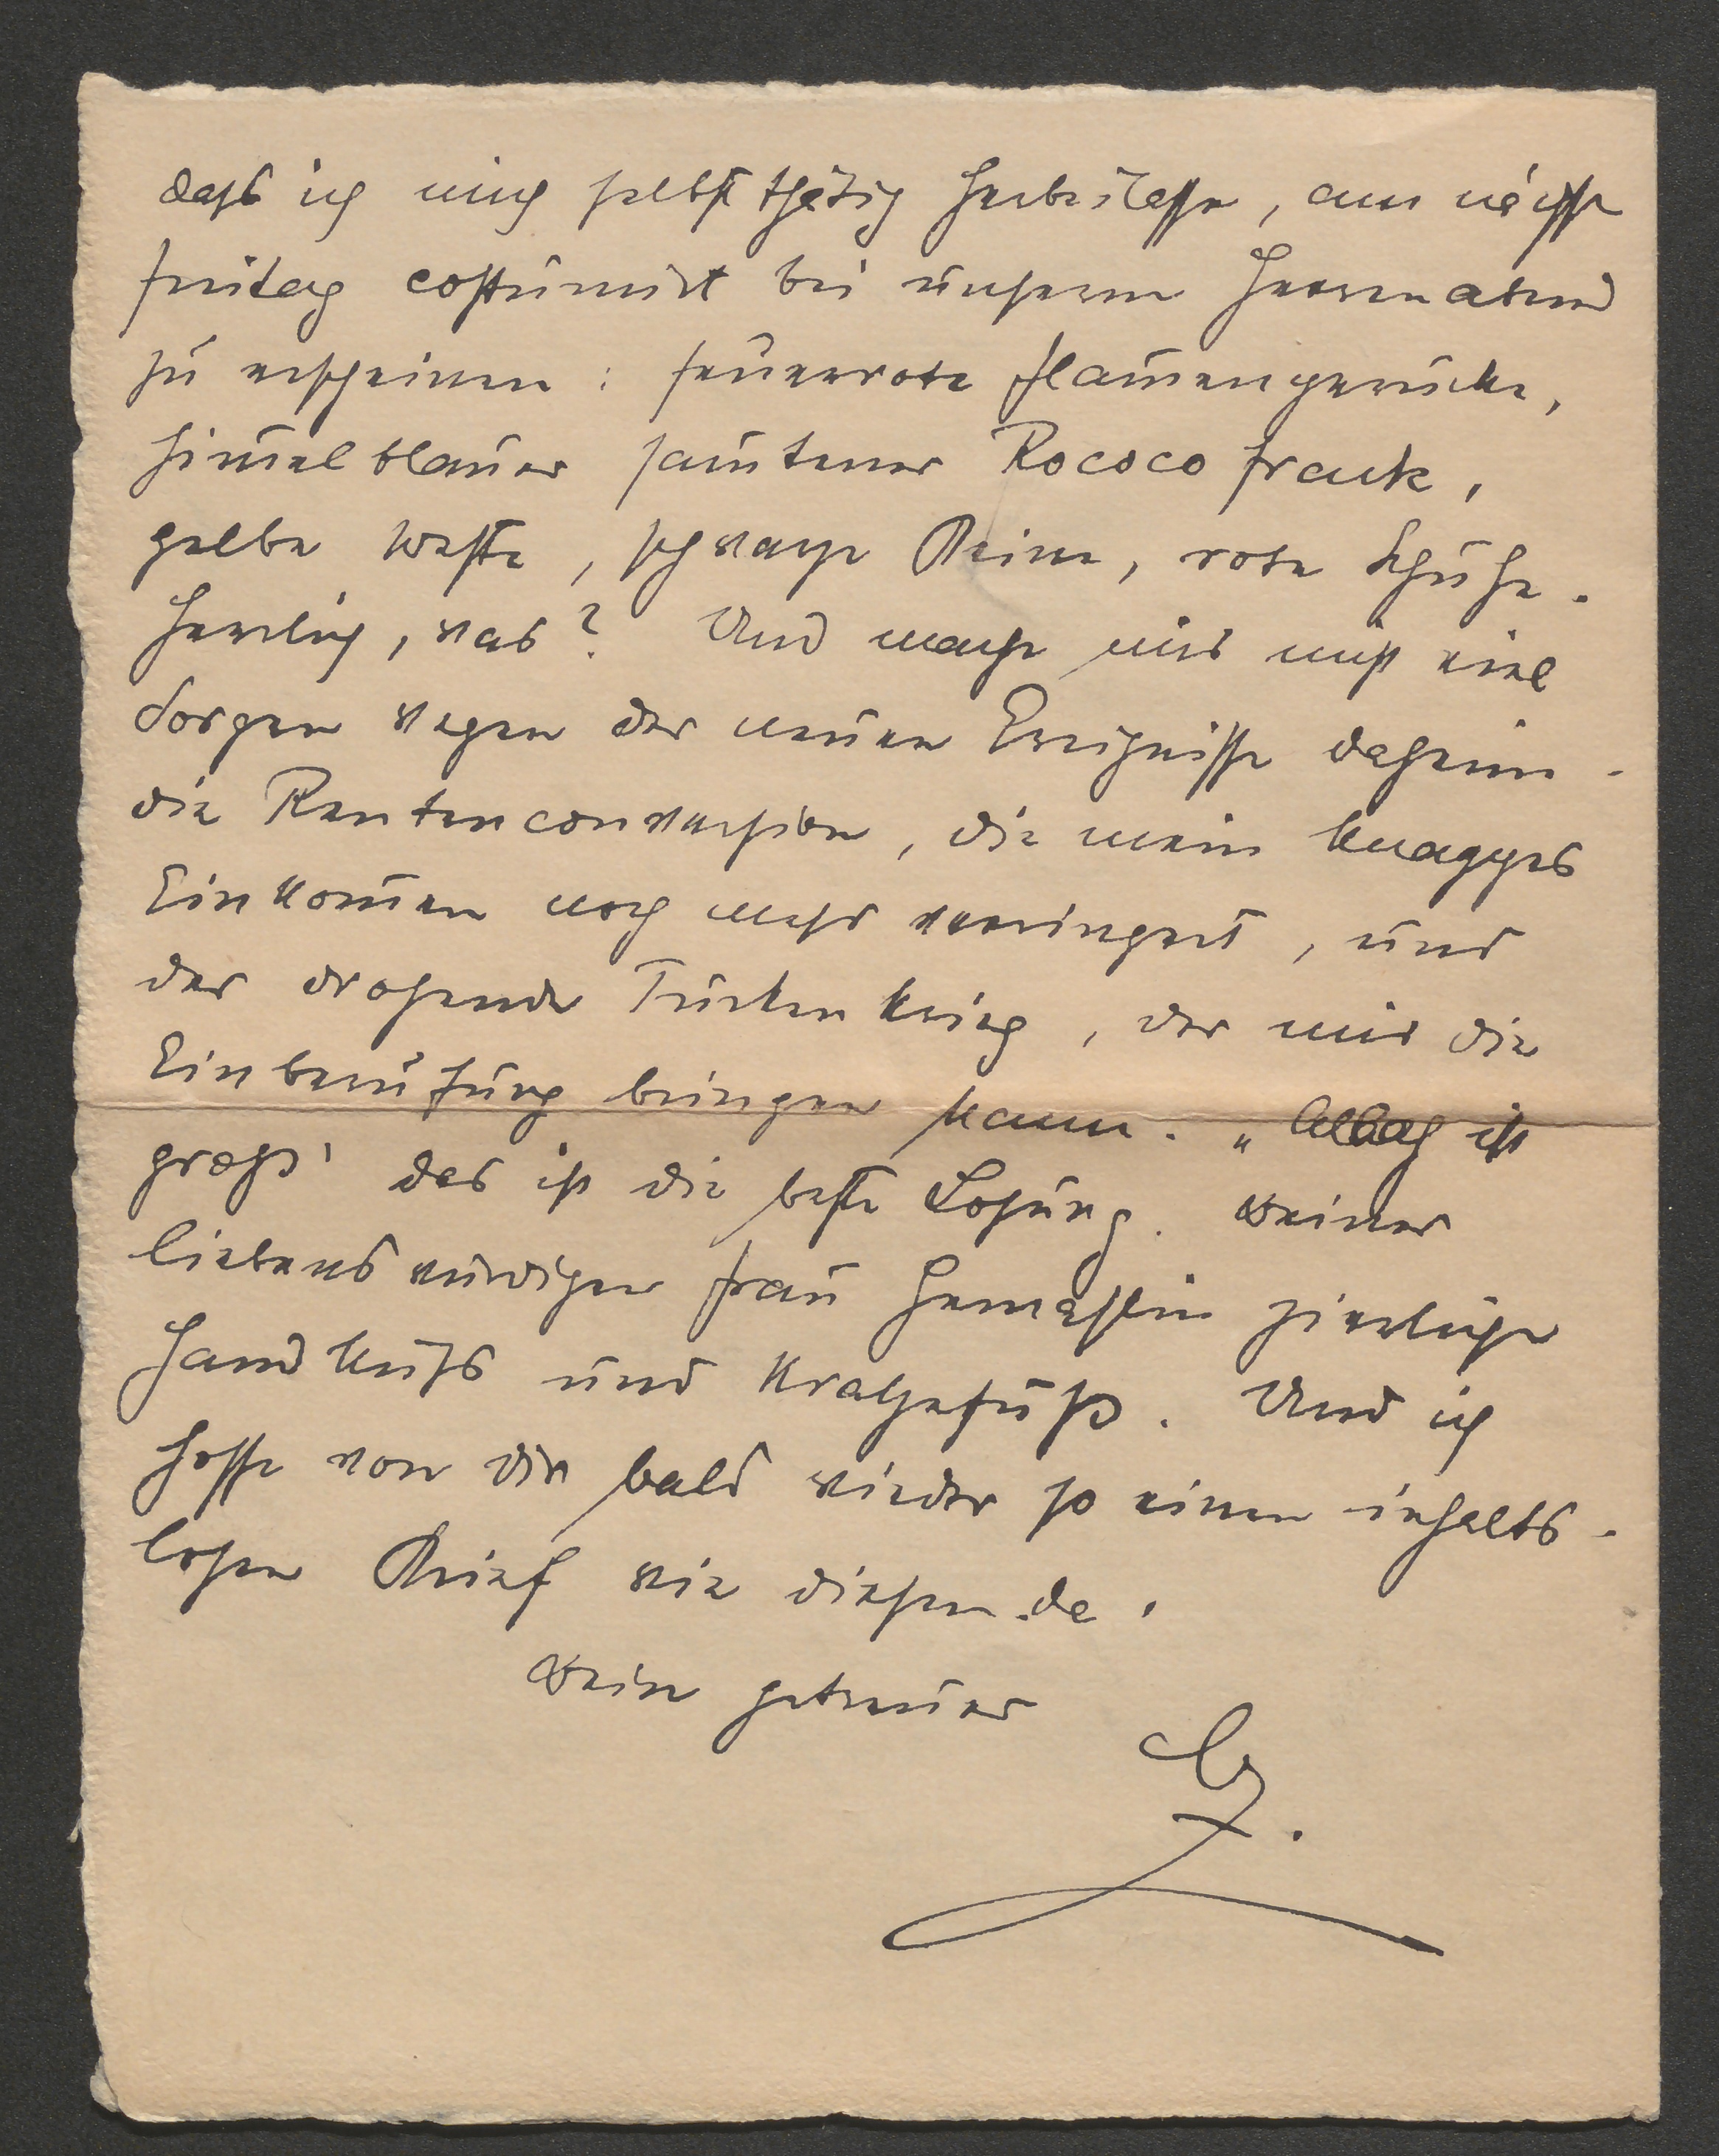 dass ich mich selbstthätig herbeilasse, am nächste
Freitag costümirt bei unserem Herrenabend
zu erscheinen: feuerrote Flam̅enperücke,
him̅elblauer sam̅tener Rococofrack,
gelbe Weste, schwarze Beine, rote Schuhe.
Herrlich, was? Und mache mir nicht viel
Sorgen wegen der neuen Ereignisse daheim.
die Rentenconversion, die mein knappes
Einkom̅en noch mehr verringert, und
der drohende Türkenkrieg, der mir die
Einberufung bringen kann. „Allah ist
gross' das ist die beste Losung. Deiner
liebenswürdigen Frau Gemahlin zierlichen
Handkuss und Kratzefuß. Und ich
hoffe von dir bald wieder so einen inhalts-
losen Brief wie diesen da.
Dein getreuer